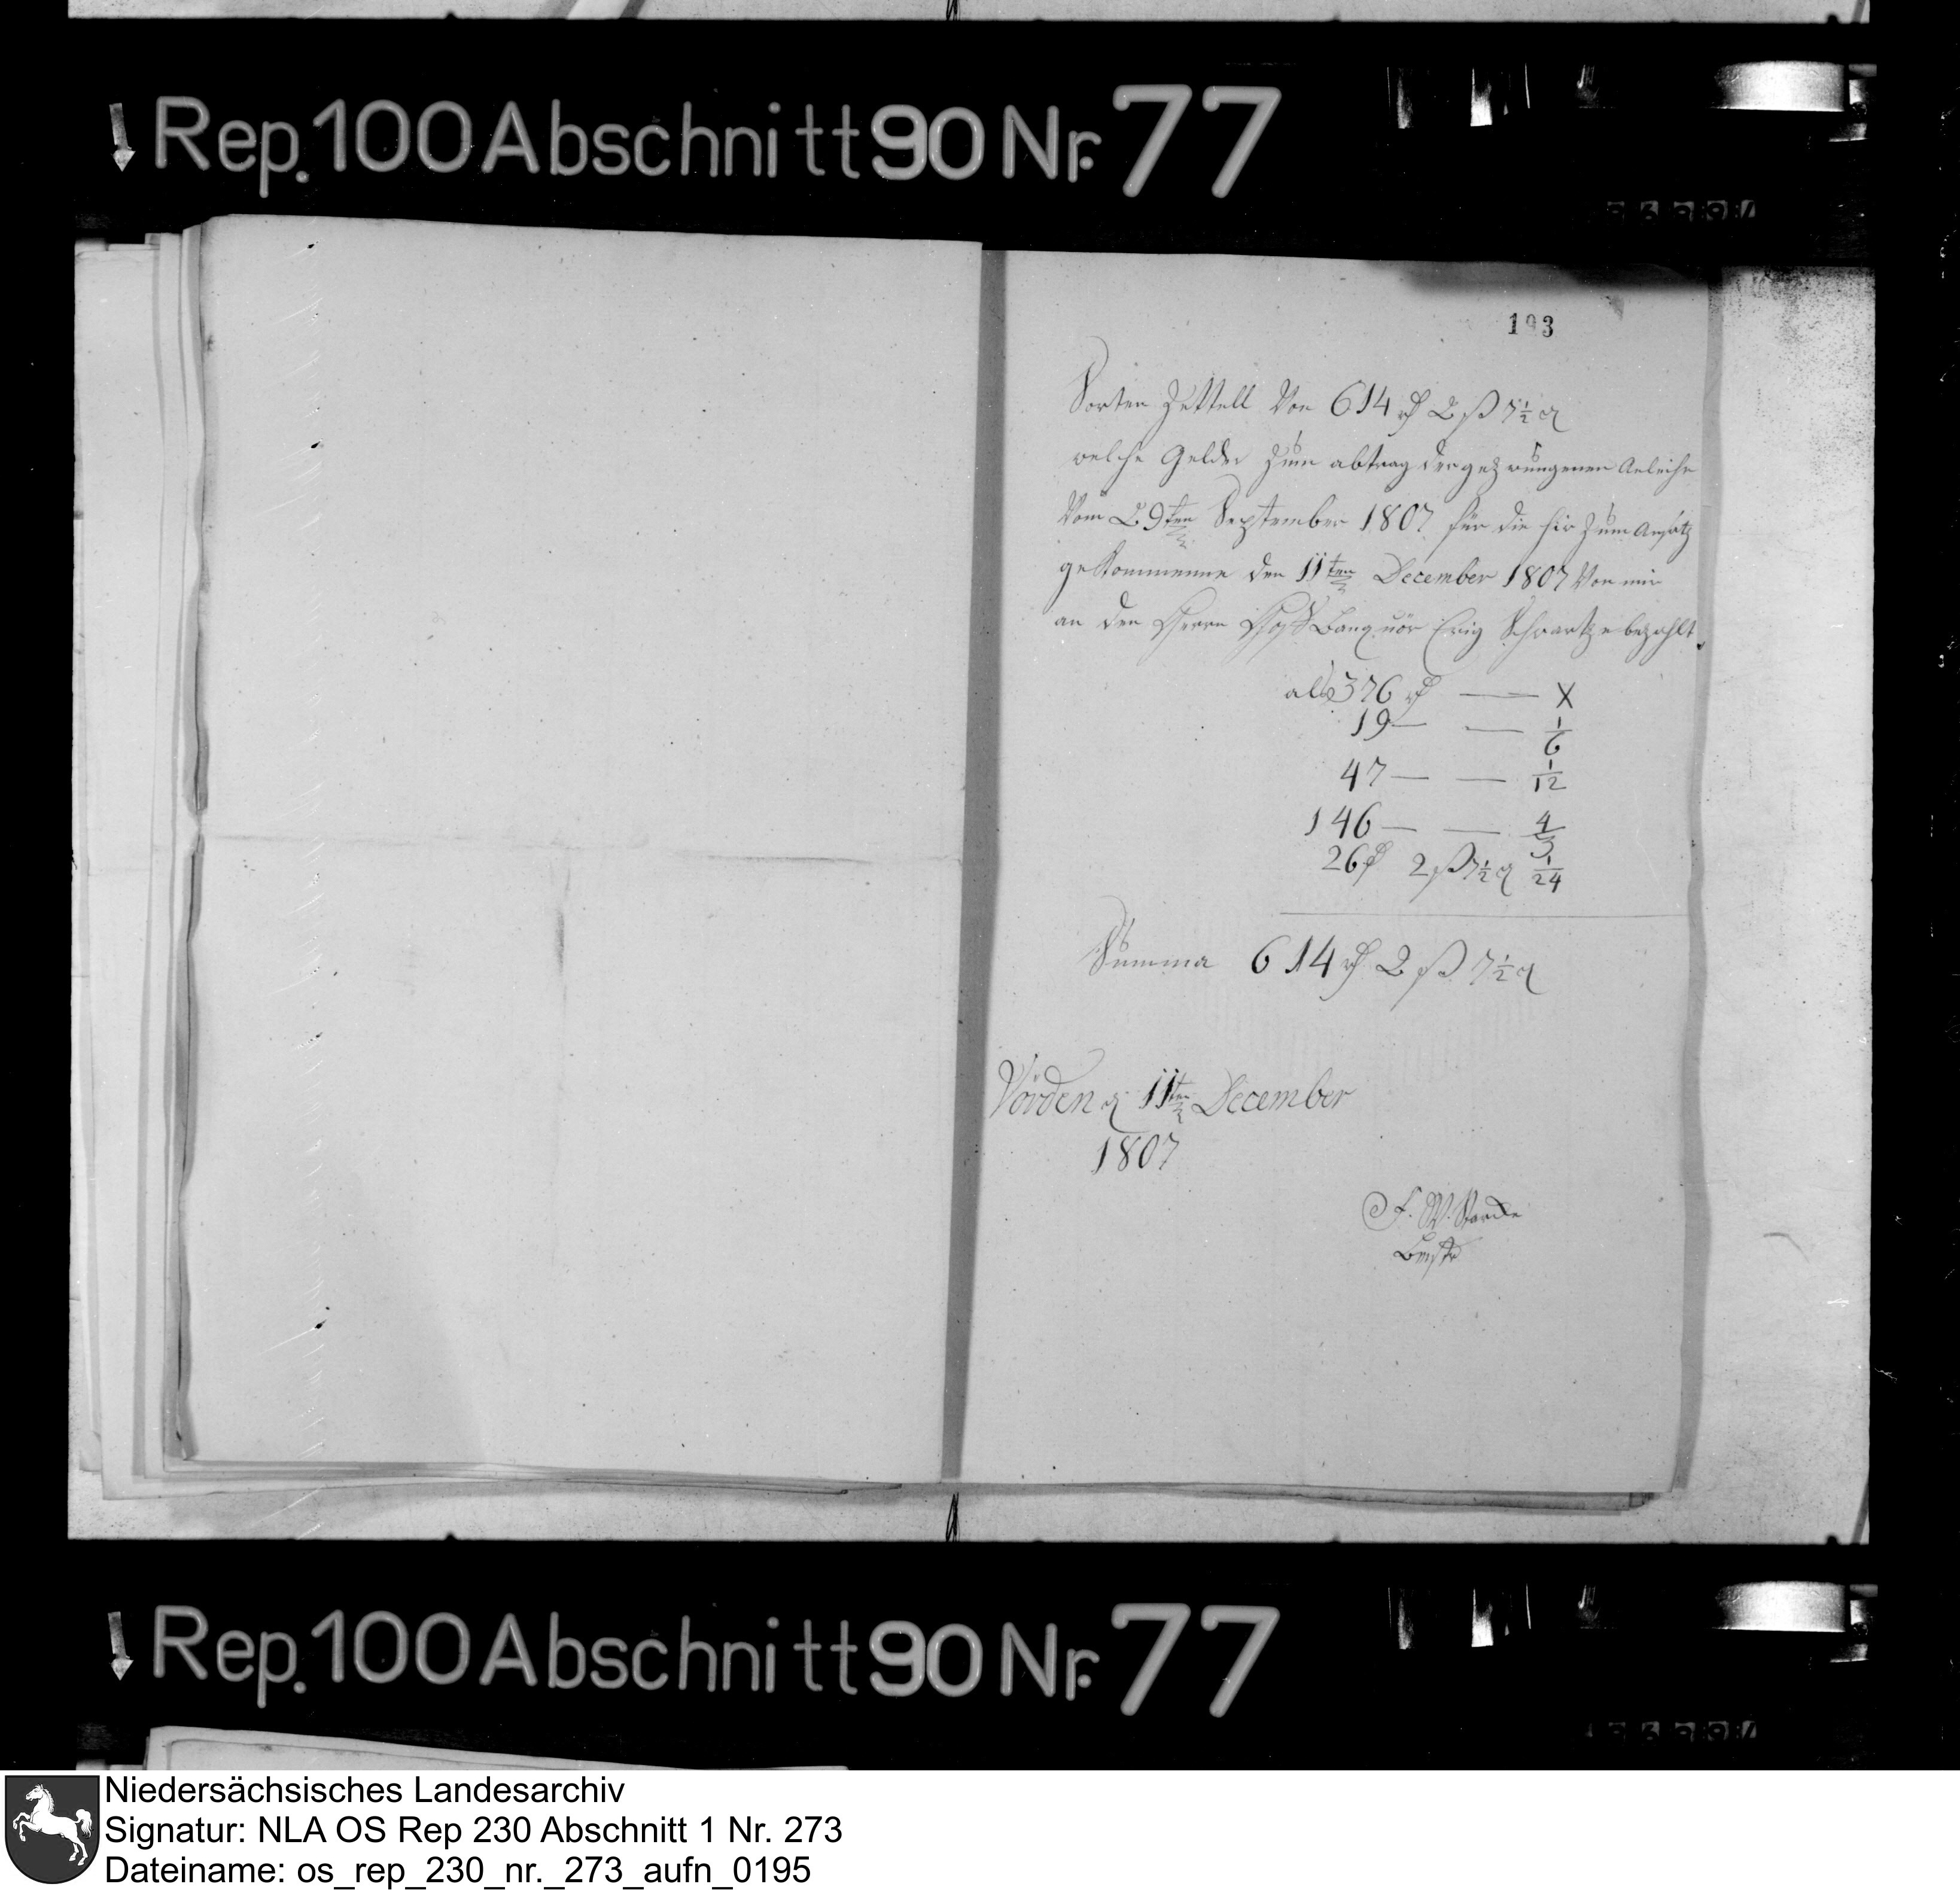 Rep. 100 Abschnitt 90 Nr. 77
193
Sorten Zettell Von 614 rthl 2 ß 7½ d
welche Gelder Zum abtrag der gezwungenen Anleihe
Vom 29ten September 1807 für die hir Zum Ansatz
gekommenne den 11ten December 1807 Von mir
an den Herrn Banquör Schwartze bezahlt
als 376 rthl — X
19 — — 1/6
47 — — 1/12
146 — — 4/3
26 rthl 2 ß 7½ d 1/24
Summa 614 rthl 2 ß 7½ d
Vörden d 11ten December
1807
F. W.
Rep. 100 Abschnitt 90 Nr. 77
Niedersächsisches Landesarchiv
Signatur: NLA OS Rep 230 Abschnitt 1 Nr. 273
Dateiname: os_rep_230_nr._273_aufn_0195